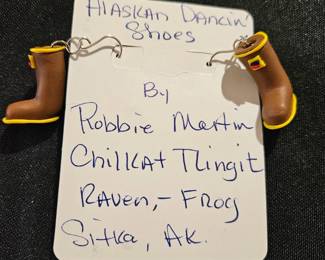 Alaskan Dancin'
Shoes
By
Robbie Martin
Chilkat Tlingit
Raven,- Frog
Sitka, AK.